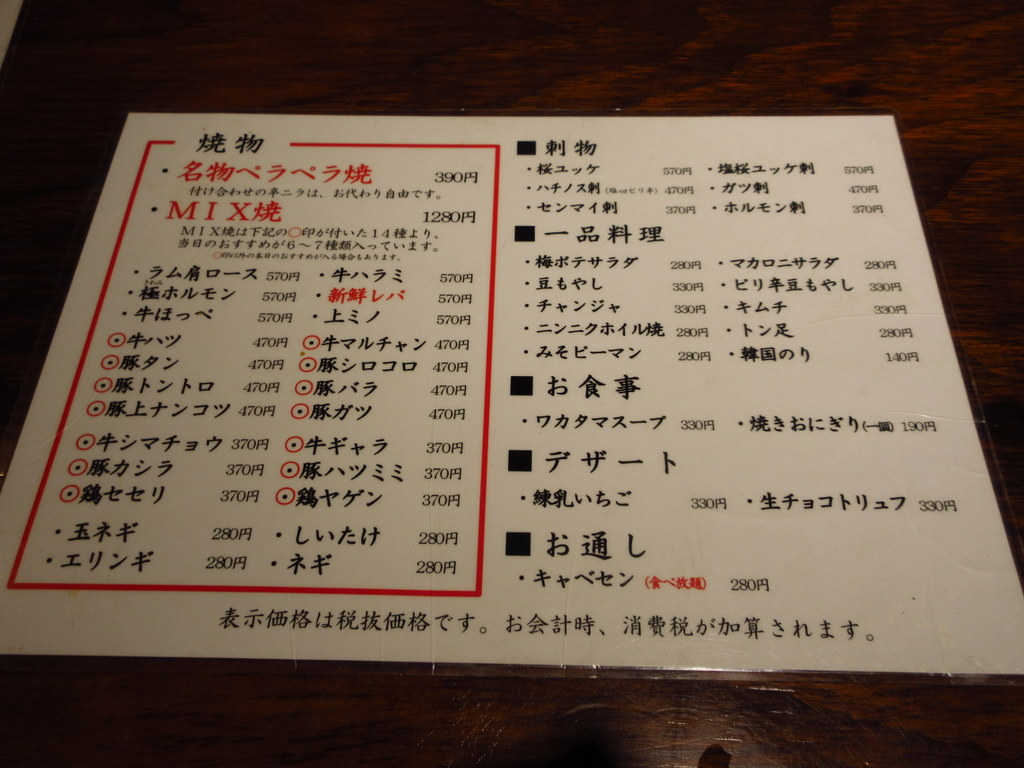 焼物
・名物ペラペラ焼 390円
付け合わせの辛ニラは、お代わり自由です。
・MIX焼 1280円
MIX焼は下記の◯印が付いた14種より、
当日のおすすめが6～7種類入っています。
◯印以外の本日のおすすめが入る場合もあります。
・ラム肩ロース 570円 ・牛ハラミ 570円
・極ホルモン 570円 ・新鮮レバ 570円
・牛ほっぺ 570円 ・上ミノ 570円
⊙牛ハツ 470円 ⊙牛マルチャン 470円
⊙豚タン 470円 ⊙豚シロコロ 470円
⊙豚トントロ 470円 ⊙豚バラ 470円
⊙豚上ナンコツ 470円 ⊙豚ガツ 470円
⊙牛シマチョウ 370円 ⊙牛ギャラ 370円
⊙豚カシラ 370円 ⊙豚ハツミミ 370円
⊙鶏セセリ 370円 ⊙鶏ヤゲン 370円
・玉ネギ 280円 ・しいたけ 280円
・エリンギ 280円 ・ネギ 280円
■ 刺物
・桜ユッケ 570円 ・塩桜ユッケ刺 570円
・ハチノス刺(塩orピリ辛) 470円 ・ガツ刺 470円
・センマイ刺 370円 ・ホルモン刺 370円
■ 一品料理
・梅ポテサラダ 280円 ・マカロニサラダ 280円
・豆もやし 330円 ・ピリ辛豆もやし 330円
・チャンジャ 330円 ・キムチ 330円
・ニンニクホイル焼 280円 ・トン足 280円
・みそピーマン 280円 ・韓国のり 140円
■ お食事
・ワカタマスープ 330円 ・焼きおにぎり(一個) 190円
■ デザート
・練乳いちご 330円 ・生チョコトリュフ 330円
■ お通し
・キャベセン (食べ放題) 280円
表示価格は税抜価格です。お会計時、消費税が加算されます。